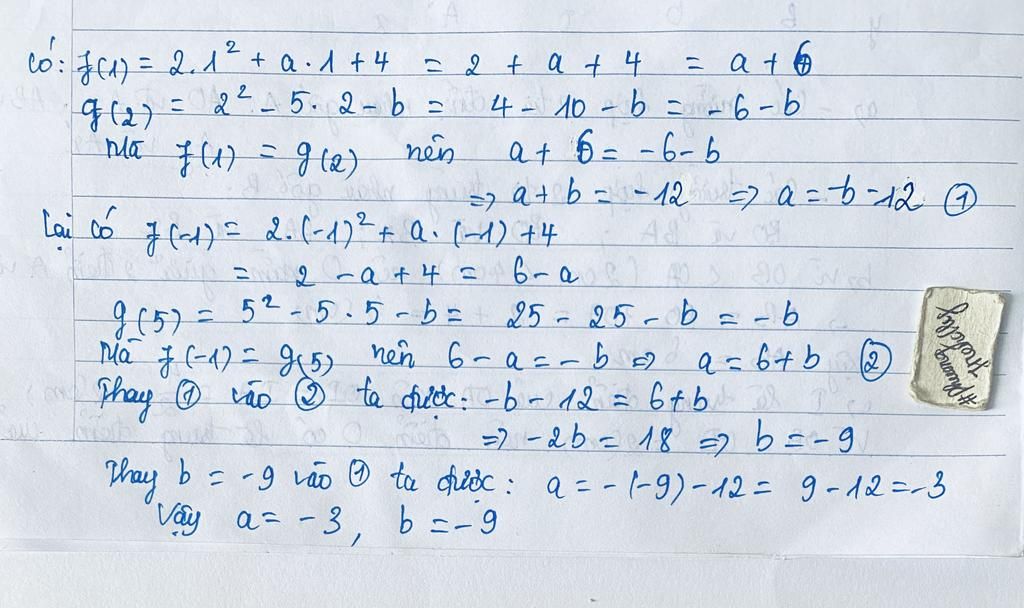 có: f(1) = 2.1² + a.1 + 4 = 2 + a + 4 = a + 6
g(2) = 2² - 5.2 - b = 4 - 10 - b = -6 - b
Mà f(1) = g(2) nên a + 6 = -6 - b
=> a + b = -12 => a = -b - 12 ①
Lại có f(-1) = 2.(-1)² + a.(-1) + 4
= 2 - a + 4 = 6 - a
g(5) = 5² - 5.5 - b = 25 - 25 - b = -b
Mà f(-1) = g(5) nên 6 - a = -b => a = 6 + b ②
Thay ① vào ② ta được: -b - 12 = 6 + b
=> -2b = 18 => b = -9
Thay b = -9 vào ① ta được: a = -(-9) - 12 = 9 - 12 = -3
Vậy a = -3, b = -9